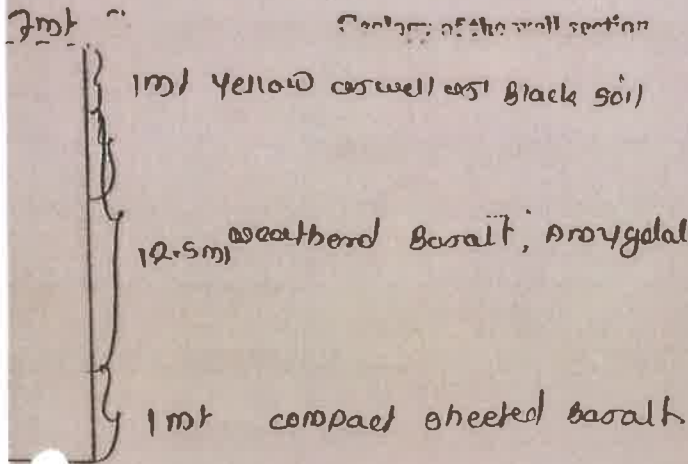 7mt
Geology of the well section
1mt yellow as well as Black soil
12.5mt weatherd Basalt, Amygdal
1mt compact sheeted Basalt